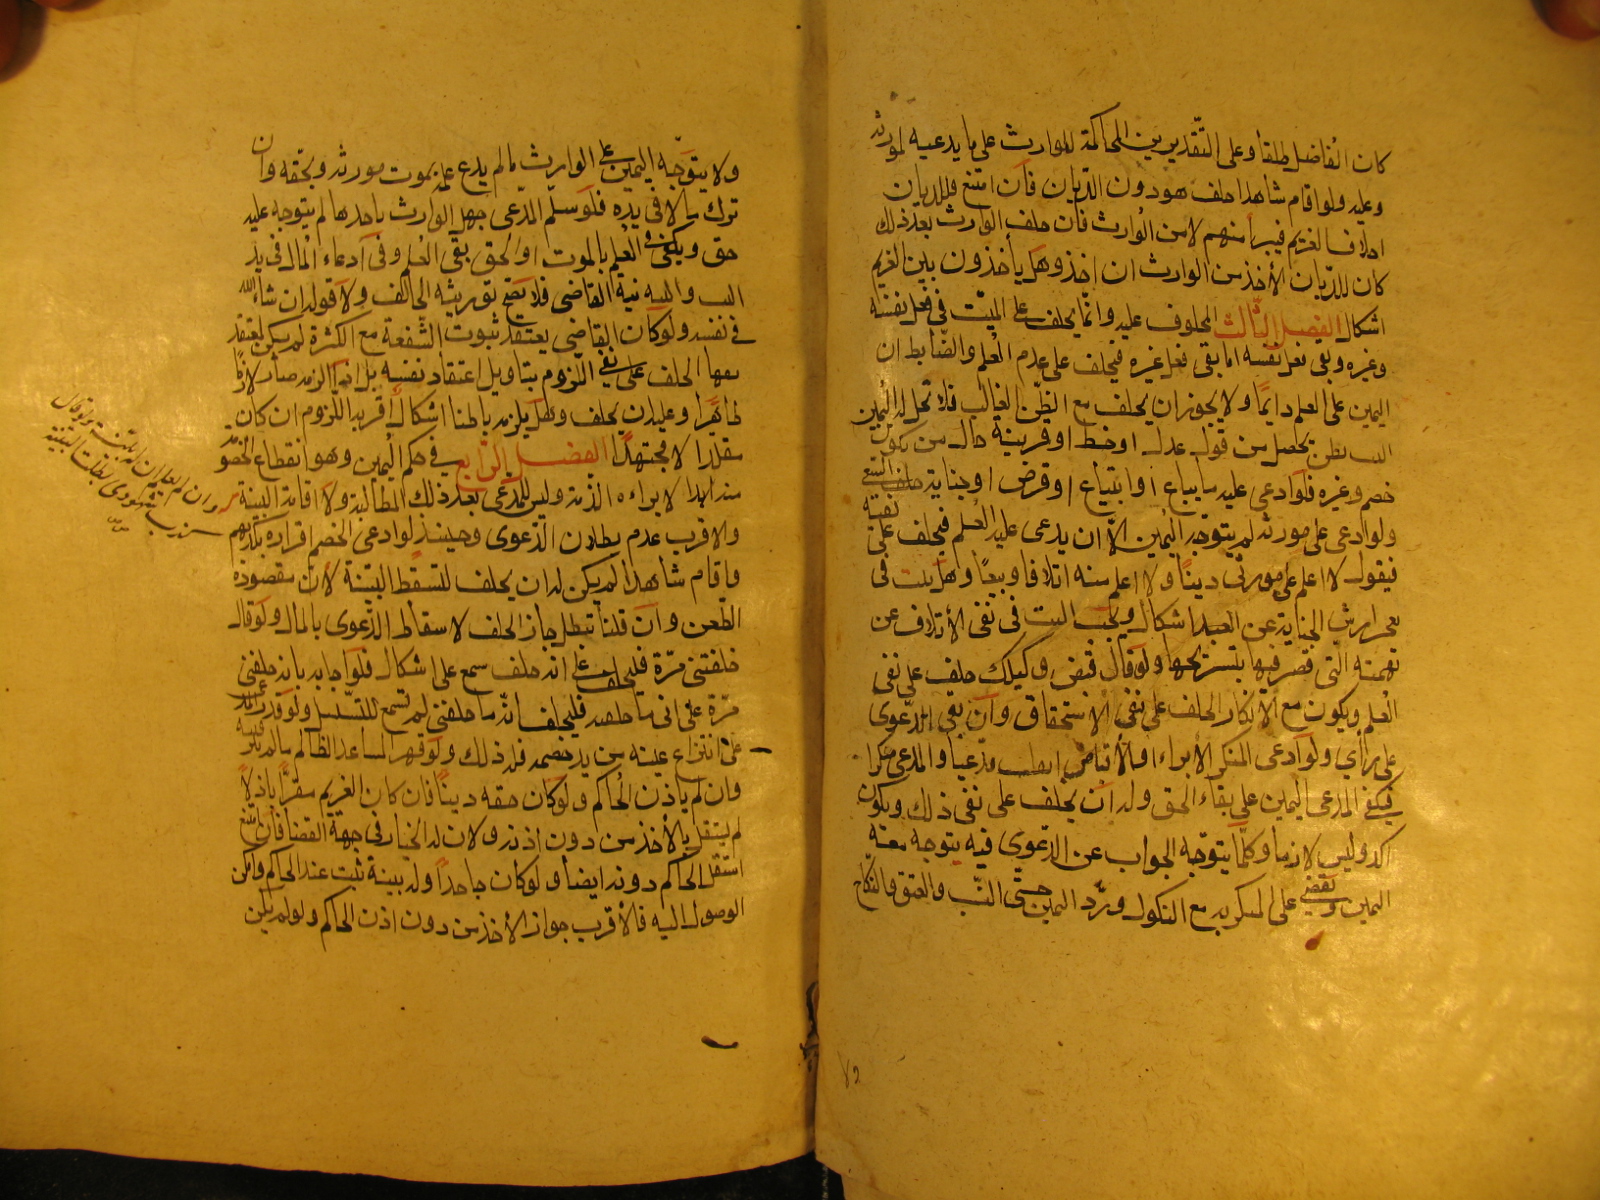 كان الفاضل طلقا وعلى التقديرين المحاكمة للوارث على ما يدعيه لمورثه
وعليه ولو اقام شاهدا حلف هو دون الديان فان امتنع فللديان
احلاف الغريم فيبرأ منهم لا من الوارث فان حلف الوارث بعد ذلك
كان للديان الأخذ من الوارث ان اخذ وهل يأخذون من الغريم
اشكال الفصل الثالث المحلوف عليه وانما يحلف على البت في فعل نفسه
وغيره ونفى فعل نفسه اما نفى فعل غيره فيحلف على عدم العلم والضابط ان
اليمين على العلم دايما ولا يجوز ان يحلف مع الظن الغالب فلا تحل له اليمين
البت بظن يحصل من قول عدل او خط او قرينة حال من نكول
خصم وغيره فلو ادعى عليه ما يباع او ابتياع او قرض او جناية حلف البت
ولو ادعى على مورثه لم يتوجه اليمين الا ان يدعى عليه العلم فيحلف على نفيه
فيقول لا اعلم على مورثي دينا ولا اعلم منه اتلافا وبيعا وهل يثبت في
نفى ارش الجناية عن العبد اشكال ويجب البت في نفى الأتلاف عن
بهيمته التي قصر فيها بتسريحها ولو قال قبض وكيلك حلف على نفى
العلم ويكون مع الانكار الحلف على نفى الاستحقاق وان نفى الدعوى
على رأي ولو ادعى المنكر الابراء او الأقباض انقلب مدعيا والمدعي منكرا
فيكفي المدعى اليمين على بقاء الحق وله ان يحلف على نفى ذلك ويكون
آكد وليس لازما وكلما يتوجه الجواب عن الدعوى فيه يتوجه معه
اليمين ويقضي على المنكر به مع النكول ورد اليمين حتى النسب والعتق والنكاح
٤٢
ولا يتوجه اليمين على الوارث ما لم يدع علمه بموت مورثه وبحقه وان
ترك مالا في يده فلو سلم المدعى جهل الوارث باحدها لم يتوجه عليه
حق ويكفي نفي العلم بالموت او الحق بنفى العلم وفى ادعاء المال في يده
البت والنية نية القاضى فلا يصح تورية الحالف ولا قوله ان شاء الله
في نفسه ولو كان القاضي يعتقد ثبوت الشفعة مع الكثرة لم يكن لمعتقد
نفيها الحلف على نفي اللزوم بتاويل اعتقاد نفسه بل اذا الزمه صار لازما
ظاهرا وعليه ان يحلف وهل يلزمه باطنا اشكال اقربه اللزوم ان كان
مقلدا لا مجتهدا الفصل الرابع في حكم اليمين وهو انقطاع الخصومة
منه ابدا لا براءة الذمة وليس للمدعى بعد ذلك المطالبة ولا اقامة البينة
والاقرب عدم بطلان الدعوى وحينئذ لو ادعى الخصم اقراره بكذبهم
واقام شاهدا لم يكن له ان يحلف لتسقط البينة لان مقصوده
الطعن وان قلنا تبطل جاز الحلف لاسقاط الدعوى بالمال ولو قال
حلفتنى مرة فليحلف على انه حلف سمع على اشكال فلو اجابه بانه حلفني
مرة على انى ما حلفته فليحلف انه ما حلفني لم تسمع للتسلسل ولو قدر المدعى
على انتزاع عينه من يد خصمه فله ذلك ولو قهرا لمساعد الظالم ما لم يثر فتنة
وان لم ياذن الحاكم ولو كان حقه دينا فان كان الغريم مقرا باذلا
لم يستقل بالأخذ من دون اذنه ولان له الخيار في جهة القضا فان امتنع
استقل الحاكم دونه ايضا ولو كان جاحدا وله بينة تثبت عند الحاكم وامكن
الوصول اليه فالأقرب جواز الأخذ من دون اذن الحاكم ولو لم يكن
وان لم يعلم ان له بينة ولو قال
كذب شهودي بطلت البينة